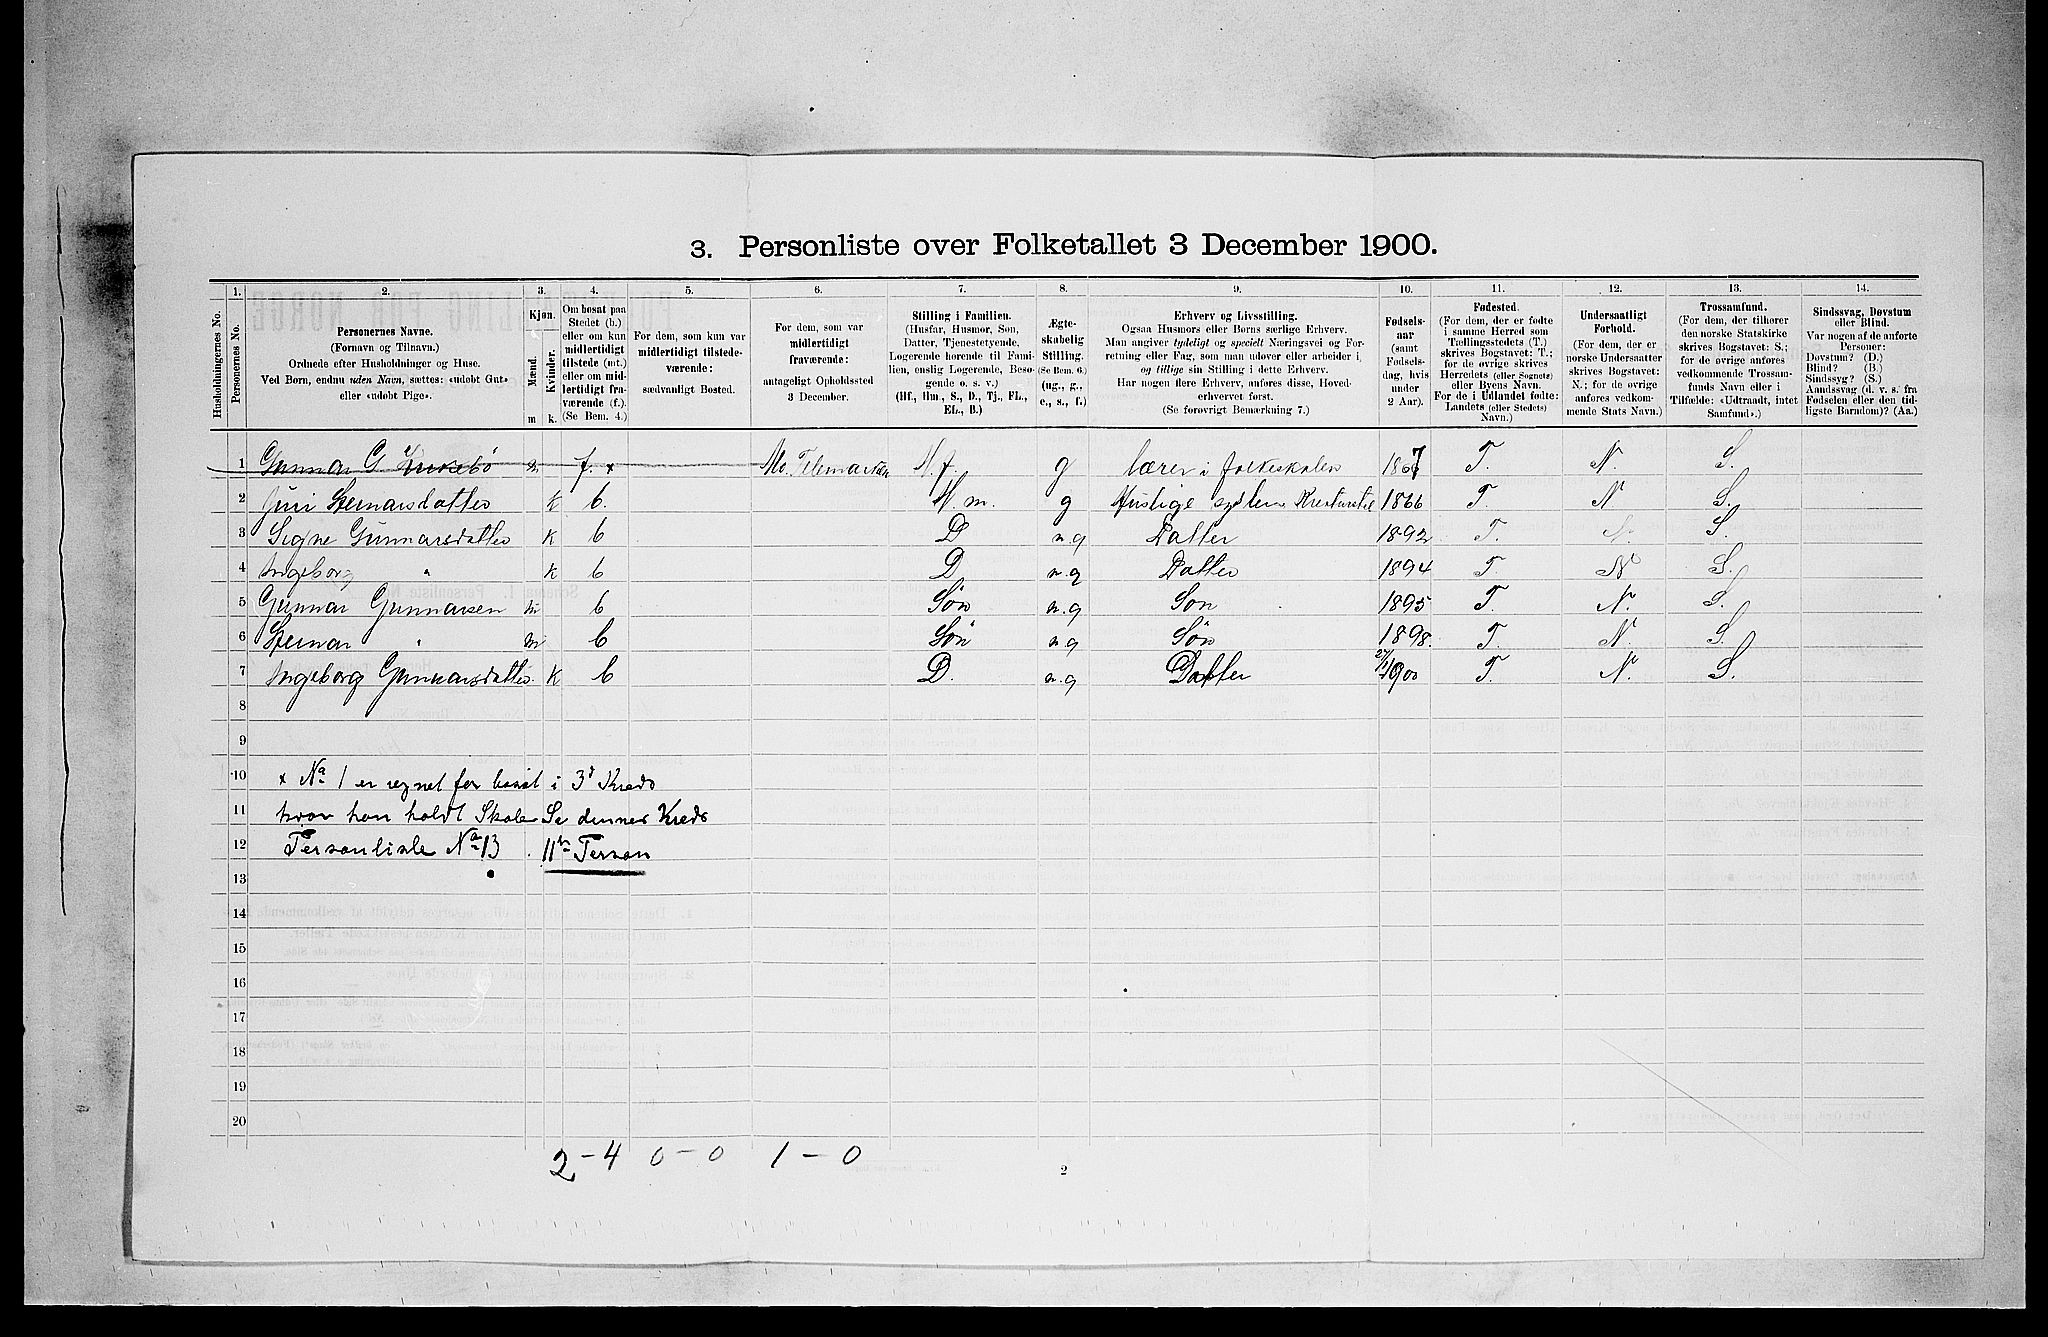 3. Personliste over Folketallet 3 December 1900.
1. 2. 3. 4. 5. 6. 7. 8. 9. 10. 11. 12. 13. 14.
Husholdningernes No.
Personernes No.
Personernes Navne.
(Fornavn og Tilnavn.)
Ordnede efter Husholdninger og Huse.
Ved Børn, endnu uden Navn, sættes: «udøbt Gut»
eller «udøbt Pige».
Kjøn.
Mænd.
Kvinder.
m k.
Om bosat paa
Stedet (b.)
eller om kun
midlertidigt
tilstede (mt.)
eller om mid-
lertidigt fra-
værende (f.).
(Se Bem. 4.)
For dem, som kun var
midlertidigt tilstede-
værende:
sædvanligt Bosted.
For dem, som var
midlertidigt
fraværende:
antageligt Opholdssted
3 December.
Stilling i Familien.
(Husfar, Husmor, Søn,
Datter, Tjenestetyende,
Logerende hørende til Fami-
lien, enslig Logerende, Besø-
gende o. s. v.)
(Hf., Hm., S., D., Tj., FL.,
EL., B.)
Ægte-
skabelig
Stilling.
(Se Bem. 6.)
(ug., g.,
e., s., f.)
Erhverv og Livsstilling.
Ogsaa Husmors eller Børns særlige Erhverv.
Man angiver tydeligt og specielt Næringsvei og For-
retning eller Fag, som man udøver eller arbeider i,
og tillige sin Stilling i dette Erhverv.
Har nogen flere Erhverv, anføres disse, Hoved-
erhvervet først.
(Se forøvrigt Bemærkning 7.)
Fødsels-
aar
(samt
Fødsels-
dag, hvis
under
2 Aar).
Fødested.
(For dem, der er fødte
i samme Herred som
Tællingsstedets (T.)
skrives Bogstavet: T.;
for de øvrige skrives
Herredets (eller Sognets)
eller Byens Navn.
For de i Udlandet fødte:
Landets (eller Stedets)
Navn.)
Undersaatligt
Forhold.
(For dem, der er
norske Undersaatter
skrives Bogstavet:
N.; for de øvrige
anføres vedkom-
mende Stats Navn.)
Trossamfund.
(For dem, der tilhører
den norske Statskirke
skrives Bogstavet: S.;
for de øvrige anføres
vedkommende Trossam-
funds Navn eller i
Tilfælde: «Udtraadt, intet
Samfund».)
Sindssvag, Døvstum
eller Blind.
Var nogen af de anførte
Personer:
Døvstum? (D.)
Blind? (B.)
Sindssyg? (S.)
Aandssvag (d. v. s. fra
Fødselen eller den tid-
ligste Barndom)? (Aa.)
1 Gunnar G. f. x Mo. Telemarken H.f. g lærer i folkeskolen 1867 T. N. S.
2 Juri Steinarsdatter k b. H.m. g Huslige sysler 1866 T. N S.
3 Signe Gunnarsdatter k b D u.g Datter 1892 T. N. S.
4 Ingeborg " k b D u.g Datter 1894 T. N S.
5 Gunnar Gunnarsen m b Søn u.g Søn 1895 T. N. S.
6 Steinar " m b Søn u g Søn 1898. T. N. S.
7 Ingeborg Gunnarsdatter. k b D. u.g Datter 1900 T. N. S.
8
9
10 x No 1 er regnet for bosat i 3d Kreds
11 hvor han holdt Skole Se dennes Kreds
12 Personliste No 13. 11te Person
13
14
15
16
17
18
19
20
2 - 4 0 - 0 1 - 0
2